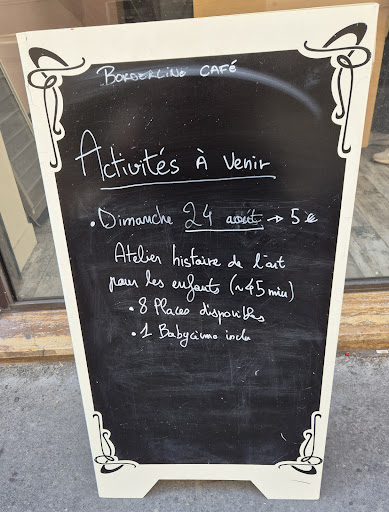 Borderline café
Activités À venir
• Dimanche 24 août → 5 €
Atelier histoire de l'art
pour les enfants (~45 min)
• 8 Places disponibles
• 1 Babycino inclu